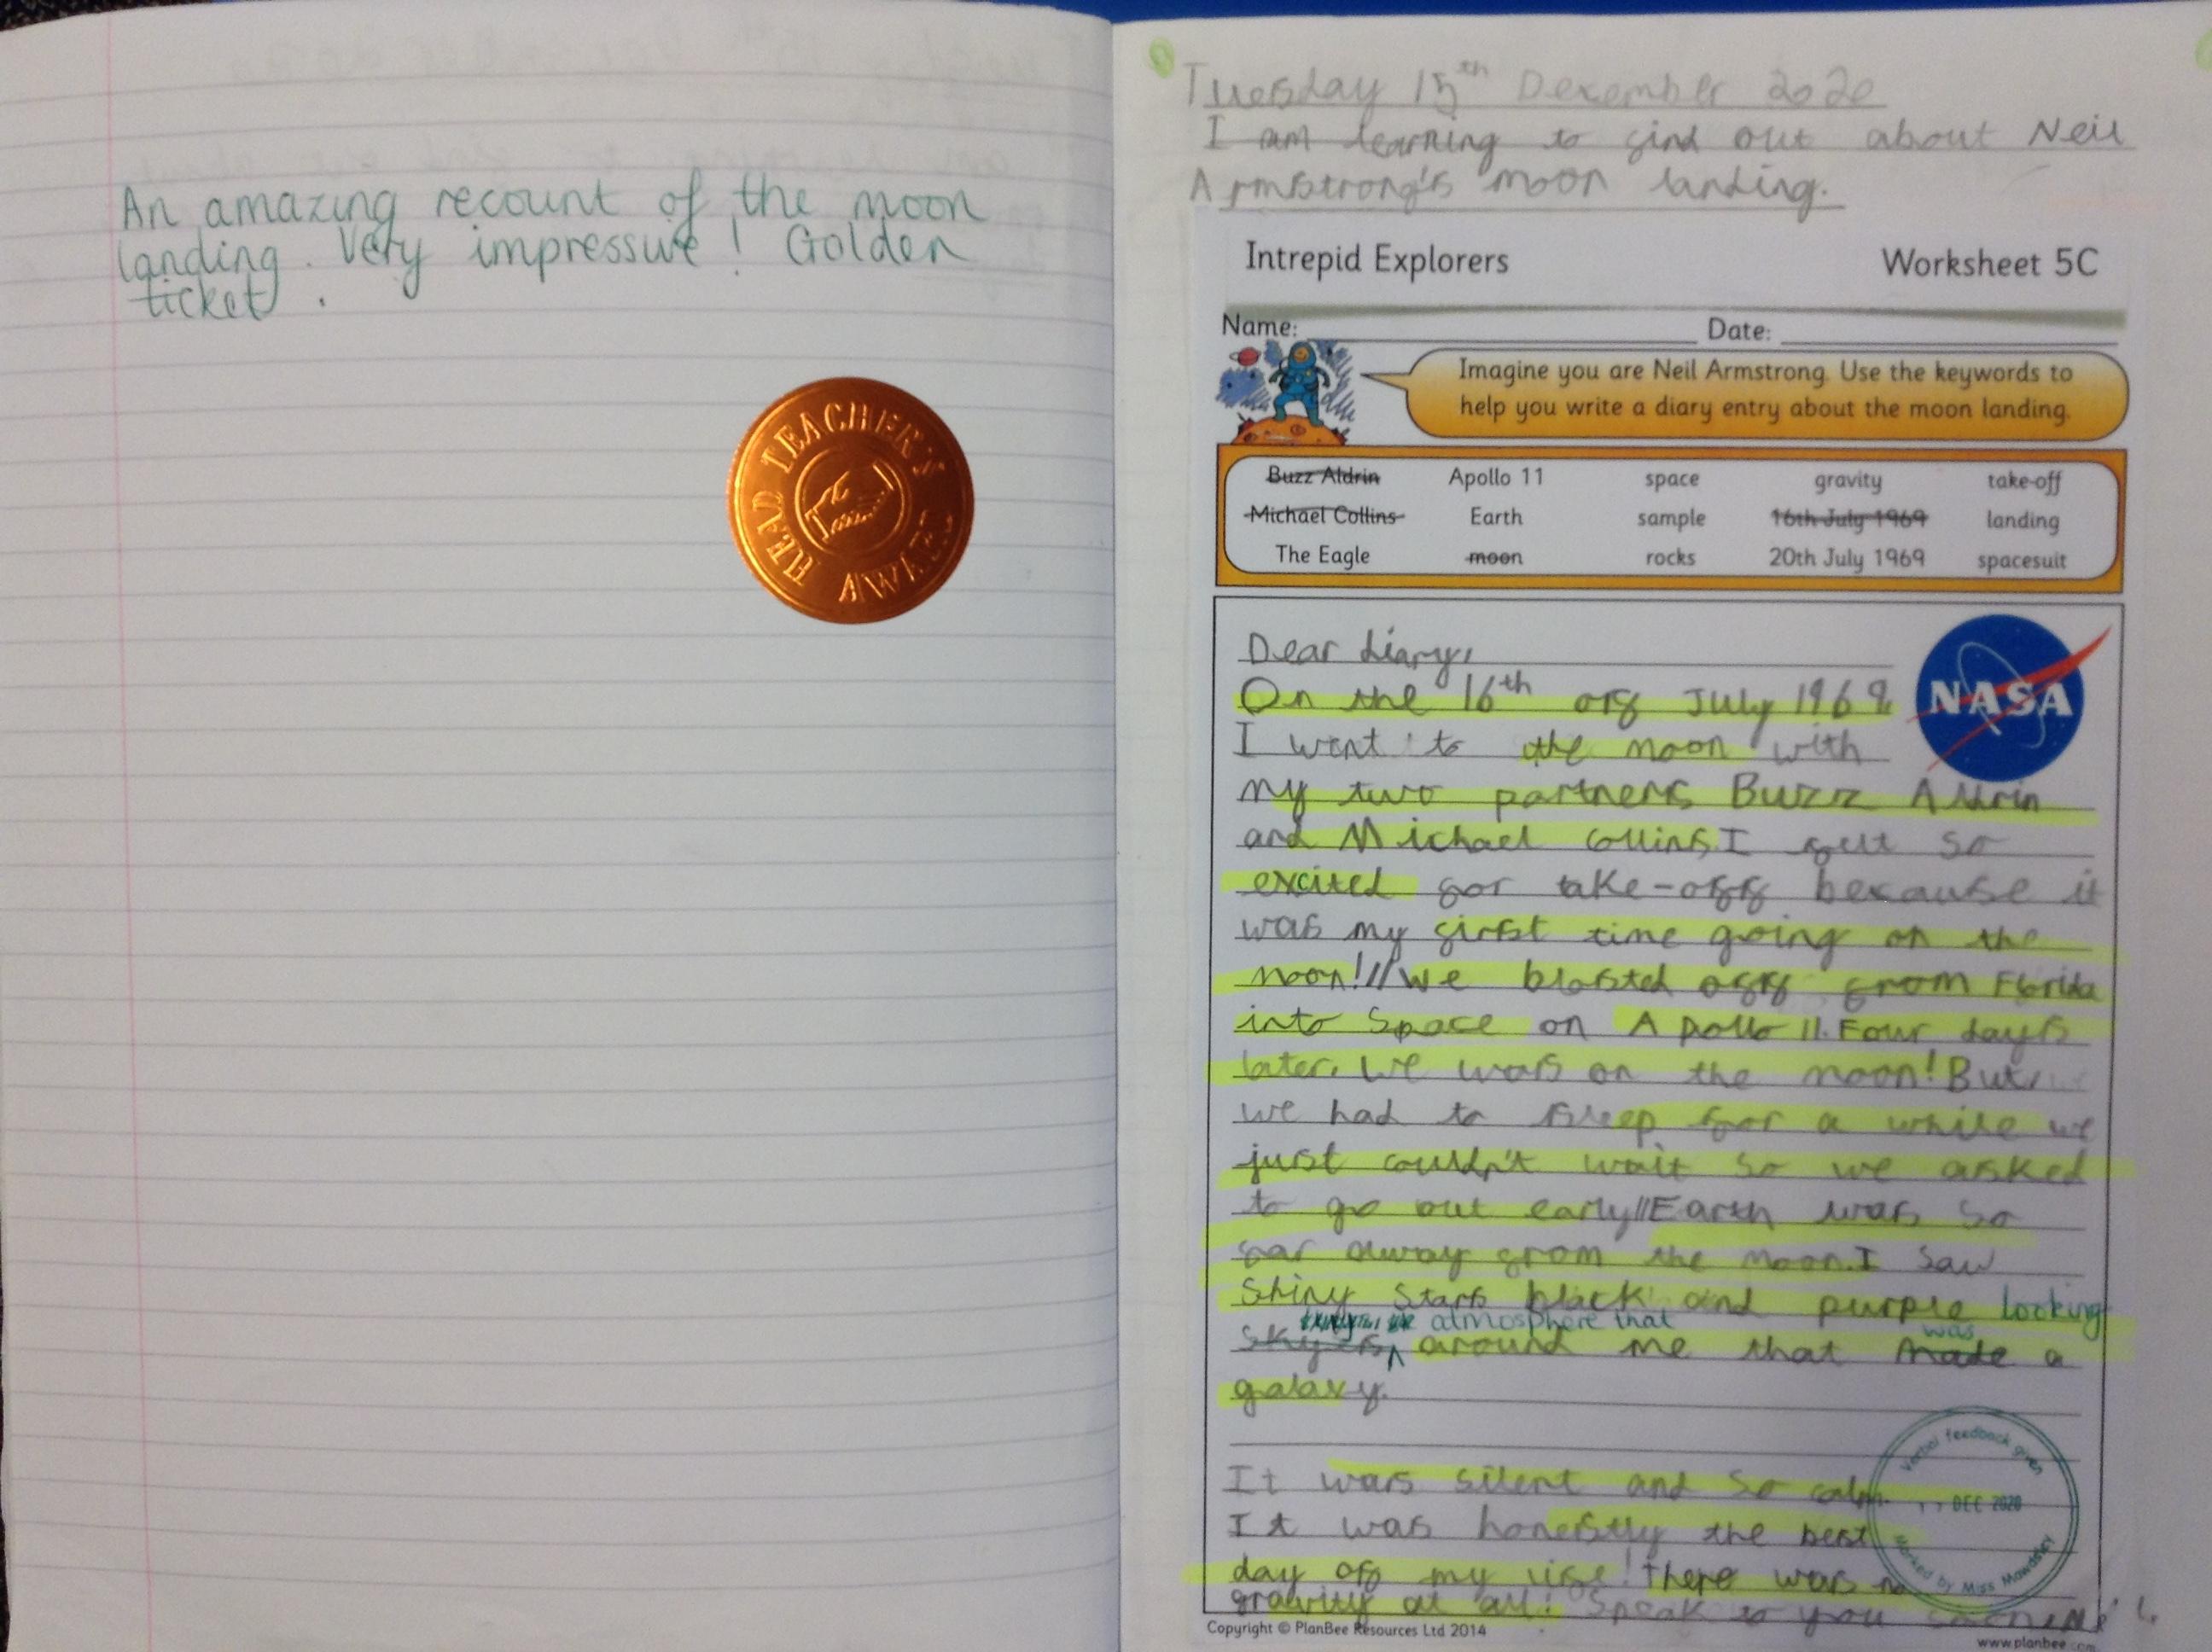 An amazing recount of the moon
landing. Very impressive! Golden
ticket.
TEACHER'S
AWARD
Tuesday 15th December 2020
I am learning to find out about Neil
Armstrong's moon landing.
Intrepid Explorers Worksheet 5C
Name: Date:
Imagine you are Neil Armstrong. Use the keywords to
help you write a diary entry about the moon landing.
Buzz Aldrin Apollo 11 space gravity take-off
Michael Collins Earth sample 16th July 1969 landing
The Eagle moon rocks 20th July 1969 spacesuit
NASA
Dear diary,
On the 16th off July 1969,
I went to the moon with
my two partners Buzz Aldrin
and Michael Collins. I felt so
excited for take-off because it
was my first time going on the
moon!//We blasted off from Florida
into Space on Apollo 11. Four days
later, we was on the moon! But
we had to sleep for a while we
just couldn't wait so we asked
to go out early//Earth was so
far away from the moon. I saw
Shiny stars black and purple looking
atmosphere that
was
skyes around me that made a
galaxy.
It was silent and so calm.
It was honestly the best
day off my life! there was no
gravity at all! Speak to you
Verbal feedback given
DEC 2020
Marked by Miss Mawdsley
Copyright © PlanBee Resources Ltd 2014
www.planbee.com